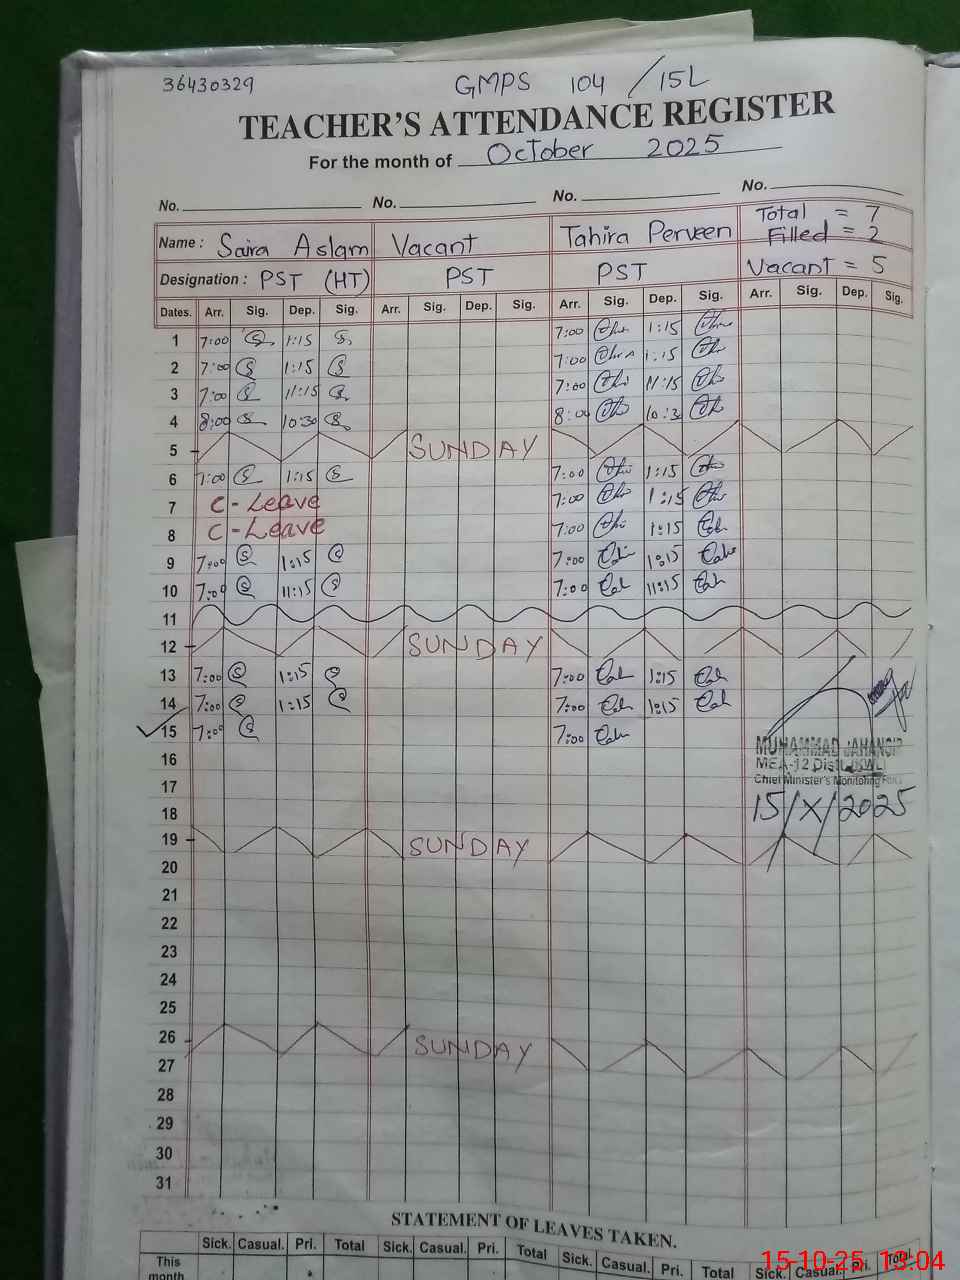 36430329 GMPS 104 /15L
TEACHER'S ATTENDANCE REGISTER
For the month of October 2025
No. No. No. No.
Name: Saira Aslam Vacant Tahira Perveen Total = 7
Filled = 2
Designation: PST (HT) PST PST Vacant = 5
Dates. Arr. Sig. Dep. Sig. Arr. Sig. Dep. Sig. Arr. Sig. Dep. Sig. Arr. Sig. Dep. Sig.
1 7:00 1:15 7:00 1:15
2 7:00 1:15 7:00 1:15
3 7:00 11:15 7:00 11:15
4 8:00 10:30 8:00 10:30
5 SUNDAY
6 7:00 1:15 7:00 1:15
7 C-Leave 7:00 1:15
8 C-Leave 7:00 1:15
9 7:00 1:15 7:00 1:15
10 7:00 11:15 7:00 11:15
11
12 SUNDAY
13 7:00 1:15 7:00 1:15
14 7:00 1:15 7:00 1:15
15 7:00 7:00
MUHAMMAD JAHANGIR
MEA-12 Distt.
Chief Minister's Monitoring
15/X/2025
16
17
18
19 SUNDAY
20
21
22
23
24
25
26 SUNDAY
27
28
29
30
31
STATEMENT OF LEAVES TAKEN.
Sick. Casual. Pri. Total Sick. Casual. Pri. Total Sick. Casual. Pri. Total Sick. Casual. Pri. Total
This
month
15-10-25 13:04